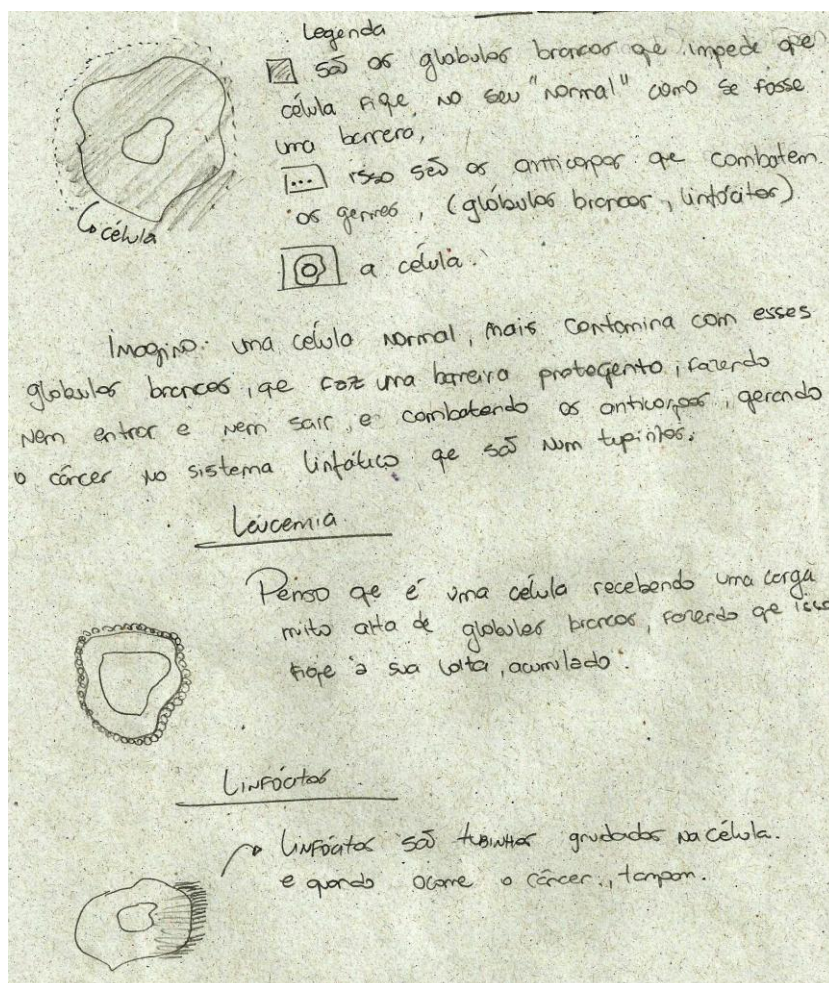 Legenda
são os glóbulos brancos qe impede qe
célula fiqe no seu "normal" como se fosse
uma barrera,
... isso são os anticorpos qe combatem
os germes, (glóbulos brancos, linfócitos).
a celula.
célula
Imagino: uma celula normal, mais contamina com esses
globulos brancos, qe faz uma barreira protegento, fazendo
nem entrar e nem sair, e combatendo os anticorpos, gerando
o câncer no sistema linfático qe são num tupinhos.
Leucemia
Penso qe é uma celula recebendo uma carga
mito alta de globulos brancos, fazendo qe isso
fiqe à sua volta, acumulado.
Linfócitos
Linfócitos são tubinhos grudados na célula.
e quando ocorre o câncer, tampam.